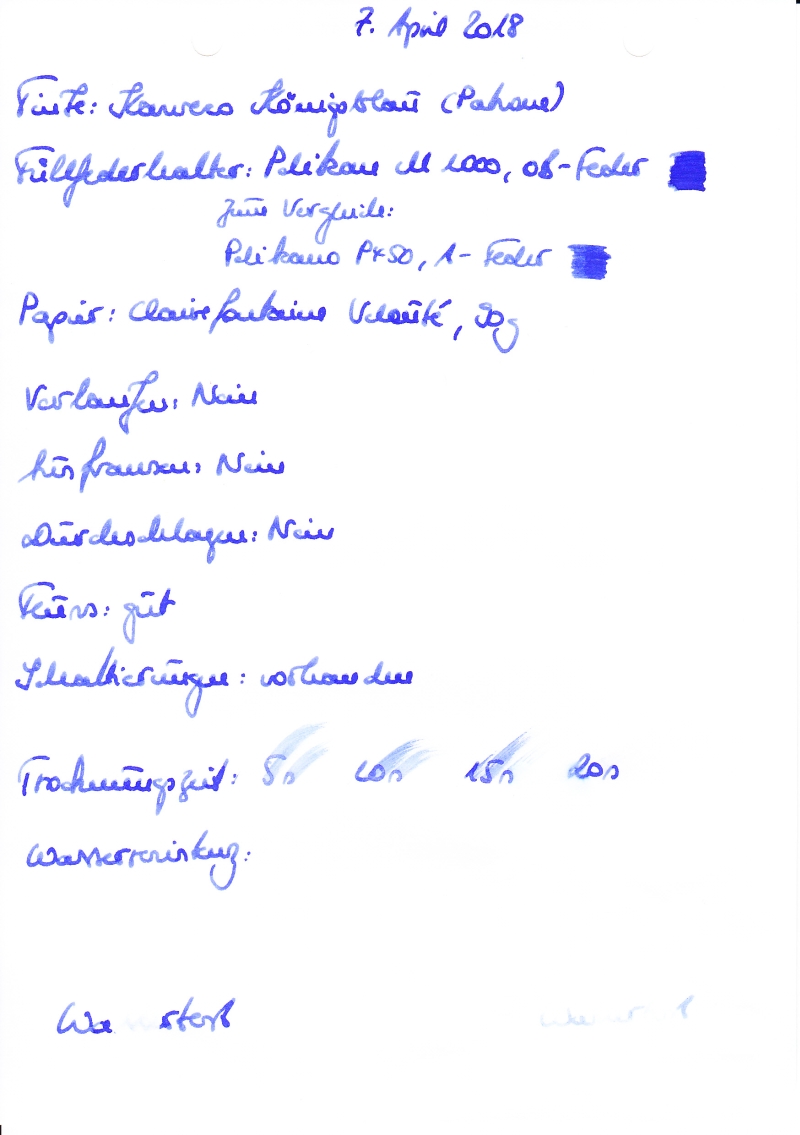 7. April 2018
Tinte: Kaweco Königsblau (Patrone)
Füllfederhalter: Pelikan M 1000, OB-Feder
zum Vergleich:
Pelikano P450, A-Feder
Papier: Clairefontaine Velouté, 90g
Verlaufen: Nein
Ausfransen: Nein
Durchschlagen: Nein
Fluss: gut
Schattierungen: vorhanden
Trocknungszeit: 5s 10s 15s 20s
Wasserreinskuz:
Wa stert